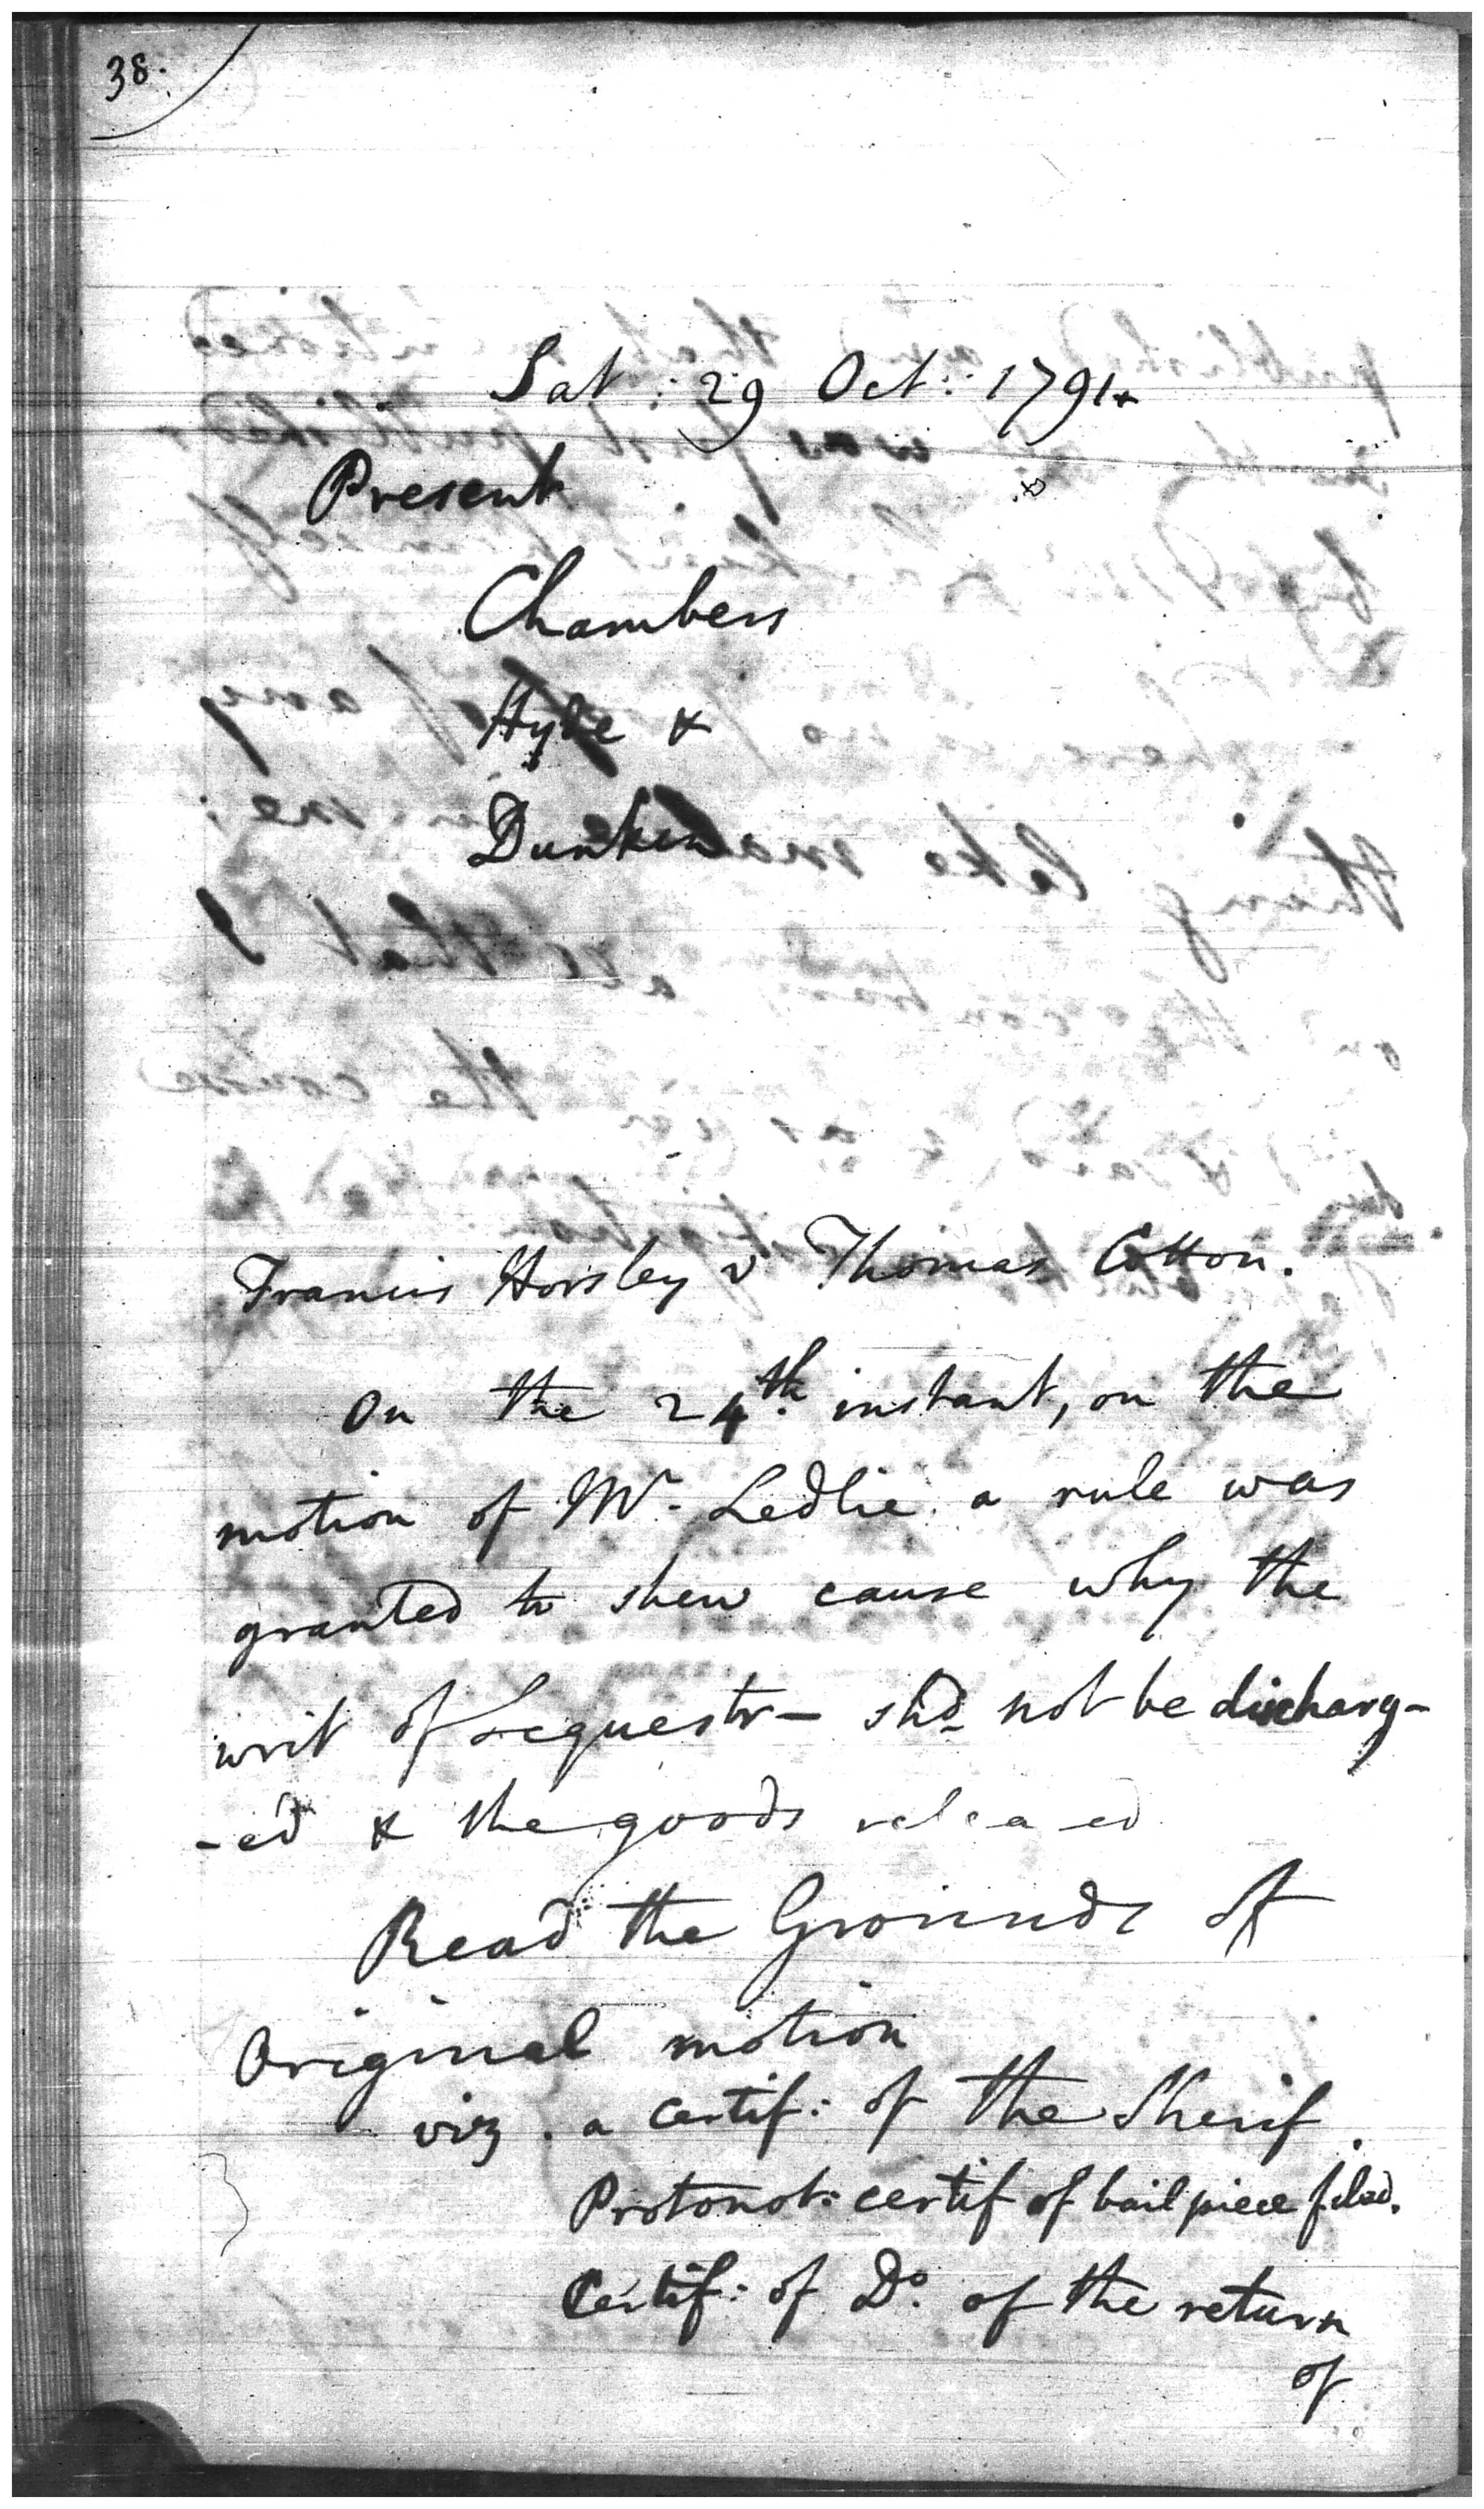 38.
Sat: 29 Oct: 1791.
Present
Chambers
Hyde &
Dunkin
Francis Horsley v Thomas Cotton.
On the 24th. instant, on the
motion of Mr. Ledlie a rule was
granted to shew cause why the
writ of Sequestr— shd. not be discharg-
-ed & the goods released
Read the Grounds of
Original motion
viz. a certif: of the Sherif.
Protonot: certif of bail piece filed.
Certif: of Do. of the return
of